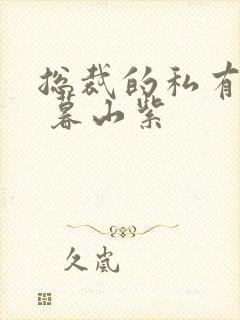 总裁的私有
暮山紫
久岚